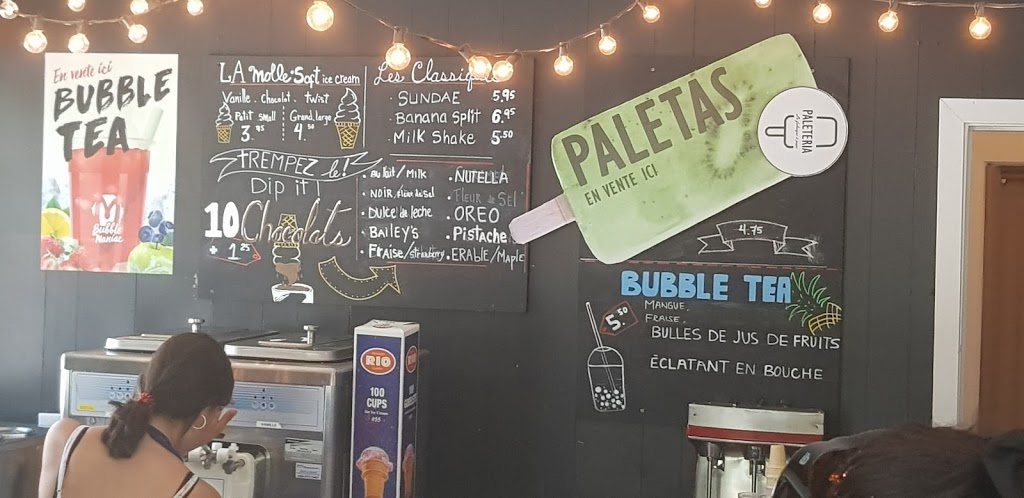 En vente ici
BUBBLE
TEA
Bubble
Maniac
LA Molle-Soft ice cream
Vanille . chocolat . twist
Petit small
3.95
Grand, large
4.50
TREMPEZ le!
DiP it!
10 Chocolats
+ 1.25
Les Classiques
. SUNDAE 5.95
. Banana Split 6.95
. Milk Shake 5.50
. au lait / Milk
. NOIR, fleur de sel
. Dulce de leche
. Bailey's
. Fraise/strawberry
. NUTELLA
. Fleur de Sel
. OREO
. Pistache
. ERABLE/Maple
PALETAS
EN VENTE ICI
PALETERIA
4.75
BUBBLE TEA
5.50
MANGUE
FRAISE,
BULLES DE JUS DE FRUITS
ÉCLATANT EN BOUCHE
RIO
100
CUPS
VANILLE